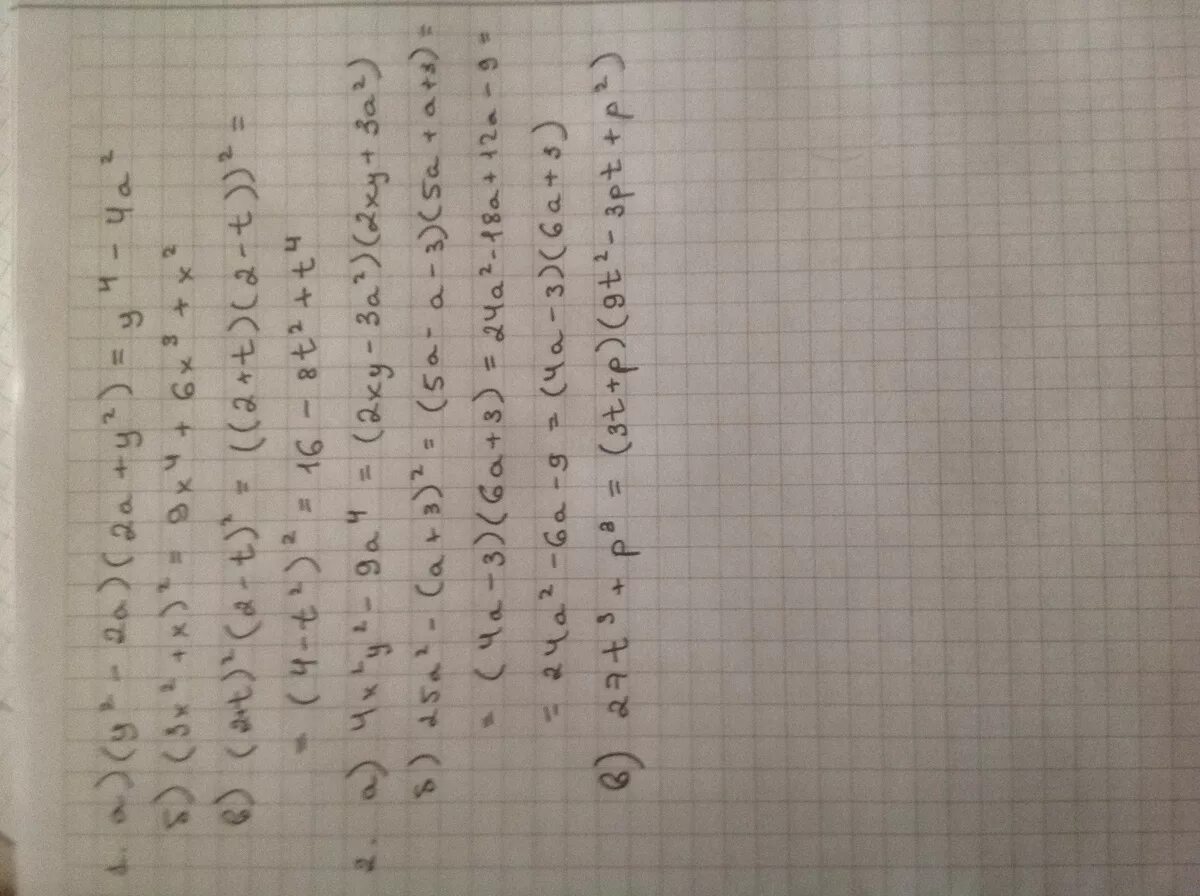 1. а) (y² - 2a)(2a + y²) = y⁴ - 4a²
б) (3x² + x)² = 9x⁴ + 6x³ + x²
в) (2+t)²(2-t)² = ((2+t)(2-t))² =
= (4-t²)² = 16 - 8t² + t⁴
2. а) 4x²y² - 9a⁴ = (2xy - 3a²)(2xy + 3a²)
б) 25a² - (a+3)² = (5a - a - 3)(5a + a + 3) =
= (4a - 3)(6a + 3) = 24a² - 18a + 12a - 9 =
= 24a² - 6a - 9 = (4a - 3)(6a + 3)
в) 27t³ + p³ = (3t + p)(9t² - 3pt + p²)